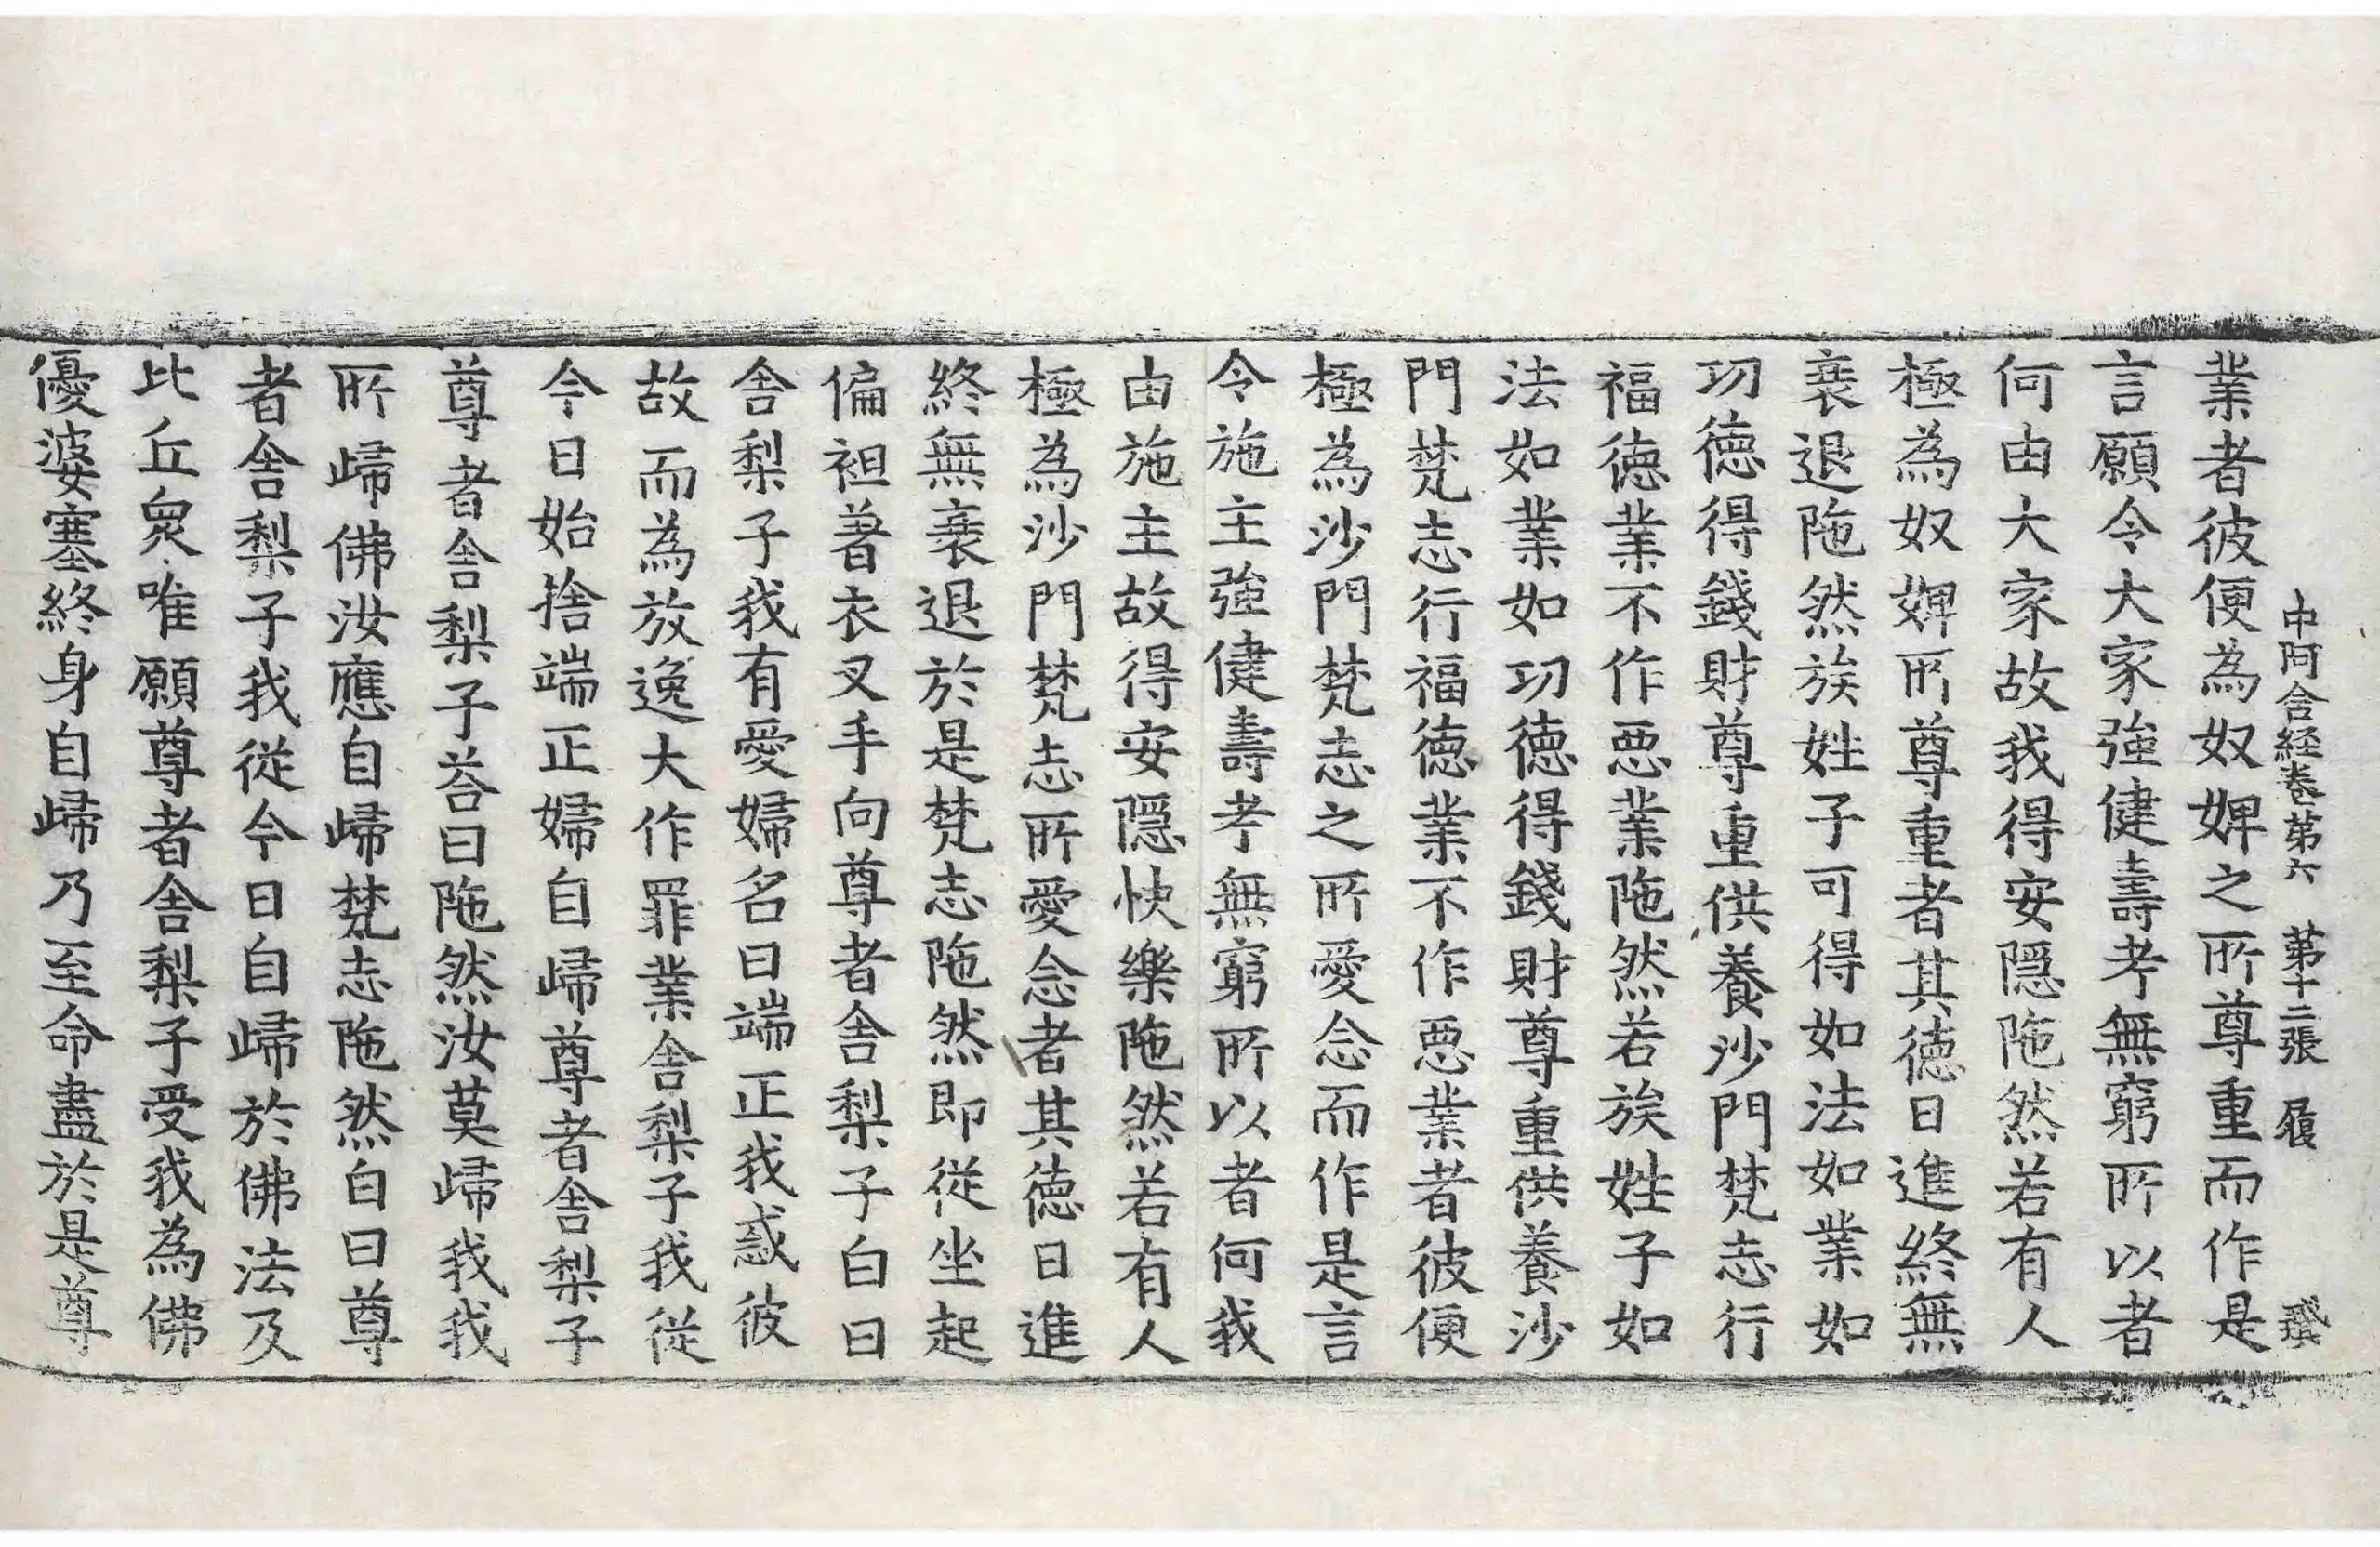 中阿含経卷第六　第十二張　履
業者彼便為奴婢之所尊重而作是
言願令大家強健壽考無窮所以者
何由大家故我得安隱陁然若有人
極為奴婢所尊重者其德日進終無
衰退陁然族姓子可得如法如業如
功德得錢財尊重供養沙門梵志行
福德業不作惡業陁然若族姓子如
法如業如功德得錢財尊重供養沙
門梵志行福德業不作惡業者彼便
極為沙門梵志之所愛念而作是言
令施主強健壽考無窮所以者何我
由施主故得安隱快樂陁然若有人
極為沙門梵志所愛念者其德日進
終無衰退於是梵志陁然即從坐起
偏袒著衣叉手向尊者舎梨子白曰
舎梨子我有愛婦名曰端正我惑彼
故而為放逸大作罪業舎梨子我從
今日始捨端正婦自歸尊者舎梨子
尊者舎梨子荅曰陁然汝莫歸我我
所歸佛汝應自歸梵志陁然白曰尊
者舎梨子我從今日自歸於佛法及
比丘衆唯願尊者舎梨子受我為佛
優婆塞終身自歸乃至命盡於是尊